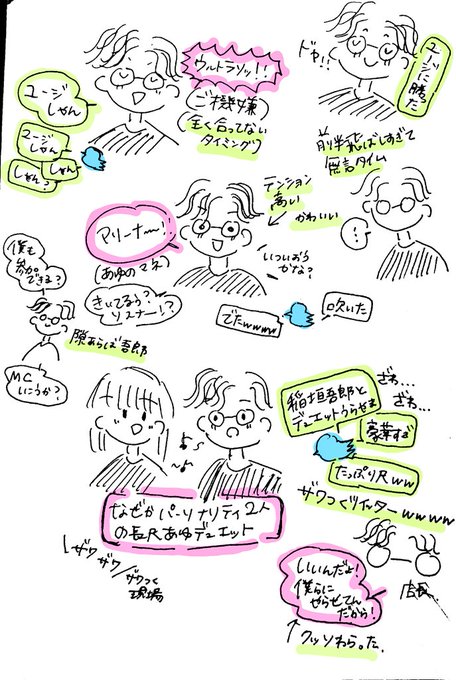 ユージ
しゃん
ユージ
しゃん
しゃんっ
しゃん
ウルトラソッ!!
(ご機嫌)
(全く合ってない
タイミング)
ドヤ!!
ユージに勝った
前半飛ばしすぎて
無言タイム
テンション
高い
かわいい
アリーナー!
(あゆのマネ)
きいてるぅ?
リスナー!?
いついおう
かな?
…
でたwwww
吹いた
僕も
参加
できる?
MC
いこうか?
隙あらば吾郎
なぜかパーソナリティ2人
の長尺あゆデュエット
ザワ
ザワ
ざわつく
現場
稲垣吾郎と
デュエットうらやま
ざわ…
ざわ…
豪華すぎ
たっぷり尺ww
ザワつくツイッターwwww
いいんだよ!
僕らに
やらせてん
だから!
店長
↑
クッソわらった